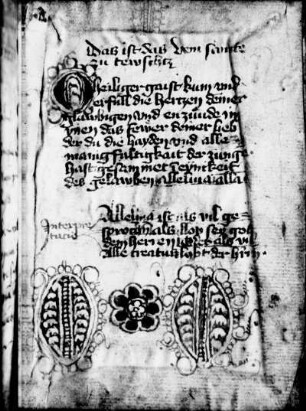 Das ist das Veni sancte
zu tewschtz
O heiliger gaist kum vnd
erfull die hertzen deiner
glawbigen vnd enzunde in
ynen das fewer deiner lieb
der du die hayden vnd alle
manigfaltigkeit der zunge
hast gesamnet in eynickeit
des gelawben alleluia alla
Alleluia ist als vil ge
sprochen als lob sey got
Interpre
tacio
dem hern
alle creatur lobt der hern